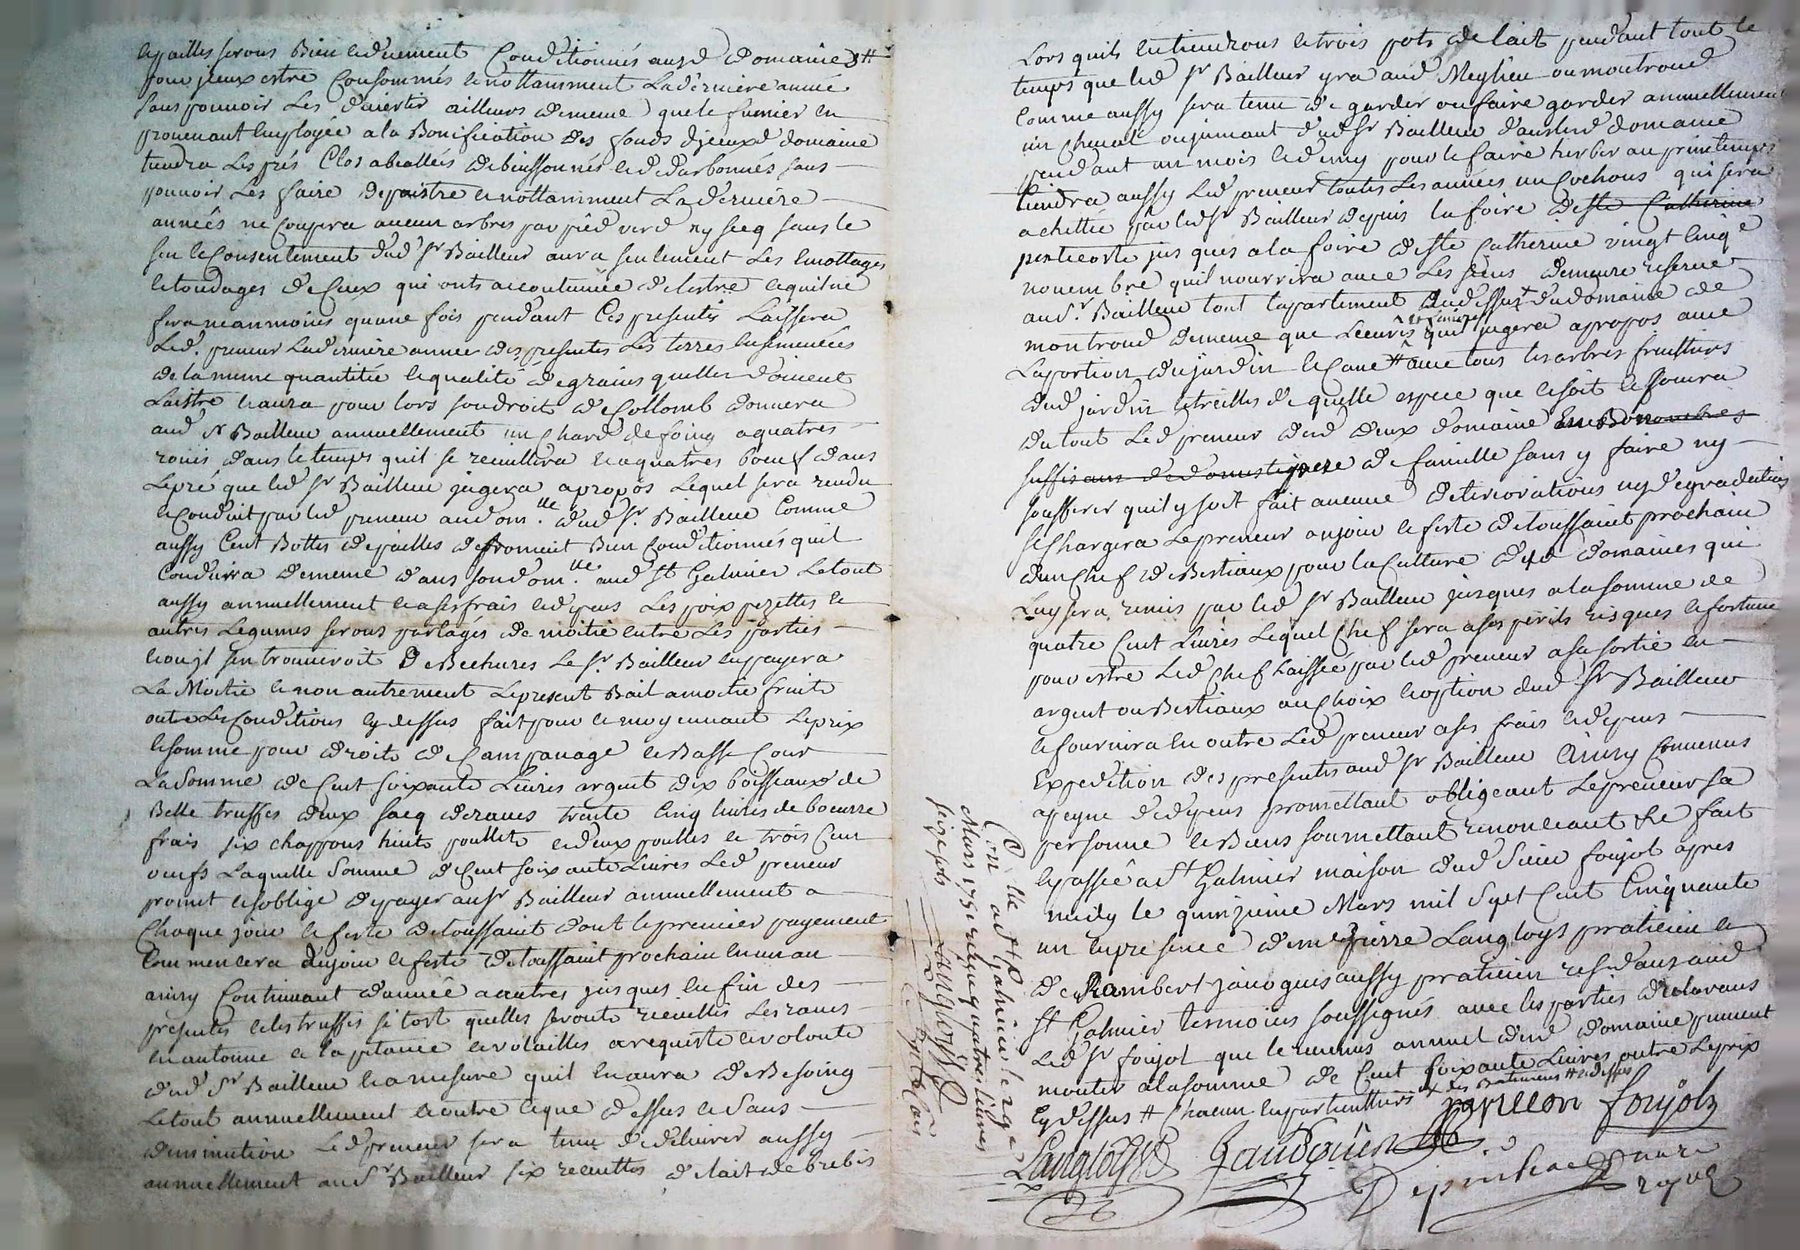 lespailles serons Bien et duement Conditionnés ausd domaine #
pour jceux estre Consommés et nottamment La derniere année
sans pouvoir Les divertir ailleurs de meme que le fumier en
provenant Employée a la Bonification des fonds djceuxd domaine
tiendra Les prés Clos abeallées debuissonnés et d'arbonnés sans
pouvoir Les faire depaistre et nottamment La derniere
années ne Coupera aucun arbres par pied verd ny secq sans le
seu et Consentement dud sr Bailleur aura seulement Les Emottages
et tondages de Ceux qui onts accoutumée delestre et qu'il ne
fera neanmoins quune fois pendant Ces presentes Laissera
Led. preneur La derniere année des presentes Les terres Ensemencées
de la meme quantitée et qualité de grains quelles doivent
Laistre et aura pour lors son droit de Collomb donnera
aud sr Bailleur annuellement un Chard de foing a quatres
roues dans le temps qu'il se recuillira et a quatres boeuf dans
Le pré que led sr Bailleur jugera apropos Lequel sera rendu
et Conduit par led preneur au dom.lle dud sr. Bailleur Comme
aussy Cent Bottes de pailles de froment Bien Conditionnés quil
Conduira de meme dans son dom.lle aud st Galmier Le tout
aussy annuellement et a ses frais et depens Les poix pezettes et
autres Legumes serons partagés de moitié entre Les parties
et ou jl s'en trouveroit De Bechures Le sr. Bailleur en payera
La Moitié et non autrement Le present Bail a moitié fruits
outre Les Conditions cy dessus fait pour et moyennant Le prix
et somme pour droits de Campanage et Basse Cour
La somme de Cent soixante Livres argent dix boisseaux de
Belle truffes deux sacq de raves trente Cinq livres de beurre
frais six chappons huits poullets et deux poulles et trois Cent
oeufs Laquelle somme de Cent soixante Livres Led preneur
promet et soblige de payer au sr Bailleur annuellement a
Chaque jour et feste de toussaint dont le premier payement
Commencera du jour et feste de toussaint prochain En un an
ainsy Continuant d'année a autres jusques En fin des
presentes et les truffes si tost quelles seronts recuillis Les raves
En autonne et la pitance et volailles a requiste et volonté
dud sr Bailleur et a mesure quil En aura de Besoing
Le tout annuellement et outre et que dessus et sans
diminution Led preneur sera tenu de delivrer aussy
annuellement aud sr Bailleur six recuittes de lait de brebis
Lors quils En tiendrons et trois pots de lait pendant tout le
temps que led sr Bailleur yra aud Meylieu ou montroud
Comme aussy sera tenu de garder ou faire garder annuellement
un Cheval ou jumant dud sr Bailleur dans led domaine
pendant un mois et demy pour le faire herber au printemps
tiendra aussy Led preneur toutes Les années un Cochons qui sera
achettée par led sr Bailleur depuis la foire de ste Catherine
pentecoste jusques a la foire de ste Catherine vingt Cinqe
novembre quil nourrira avec Les siens demeure reservé
aud sr. Bailleur tout L'apartement du dessus du domaine de
montroud de meme que Lecuris et fenieres quil jugera apropos avec
La portion du jardin et Cave # avec tous Les arbres fruittiers
dud jardin et treilles de quelle espece que ce soit et servira
du tout Led preneur dud deux domaine En Bon nombres
suffisans de domestiq pere de famille sans y faire ny
souffrir quil y soit fait aucune deteriorations ny degradations
se Chargera Le preneur au jour et feste de toussaint prochain
d'un Chef de Bestiaux pour la Culture desd domaines qui
Luy sera remis par led sr Bailleur jusques a la somme de
quatre Cent Livres Lequel Chef sera a ses perils risques et fortune
pour estre Led Chef Laissée par led preneur a sa sortie En
argent ou Bestiaux au Choix et option dud sr Bailleur
et fournira En outre Led preneur a ses frais et depens
Expedition des presentes aud sr Bailleur ainsy Convenus
a peyne de depens promettant obligeant Le preneur sa
personne et Biens soumettant renonceant &e fait
et passée a st Galmier maison dud sieur foujols apres
midy le quinzieme Mars mil sept Cent Cinquante
un En presence de me pierre Langloys praticien et
de Rambert jacoguis aussy praticien residans aud
st Galmier temoins soussignés avec les parties declarans
Led sr foujol que le revenus annuel dud domaine peuvent
monter a la somme de Cent soixante Livres outre Le prix
Cy dessus # Chacun En particulliers x des Batiments # et dessus
papillon foujols
Langloys Jaudouin
Depinhac nore
royal
Con.lle a st Galmier le 29e
Mars 1751 reçu quatre livres
seize sols Langloys